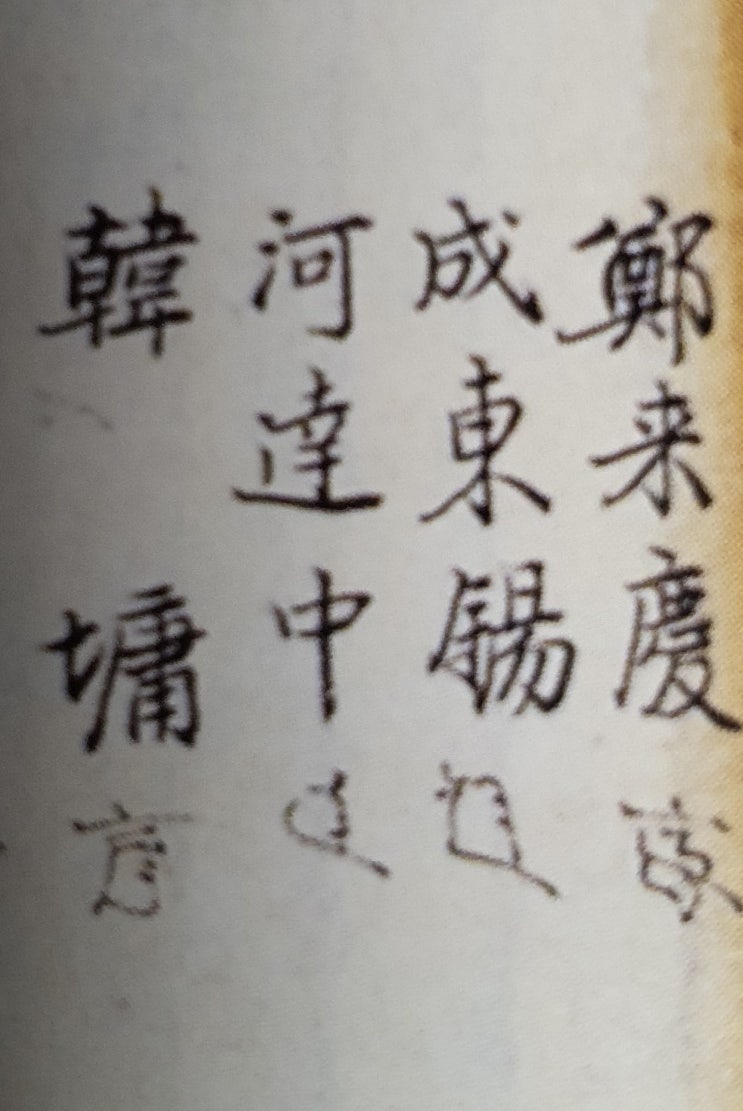 鄭来慶
成東錫
河達中
韓墉